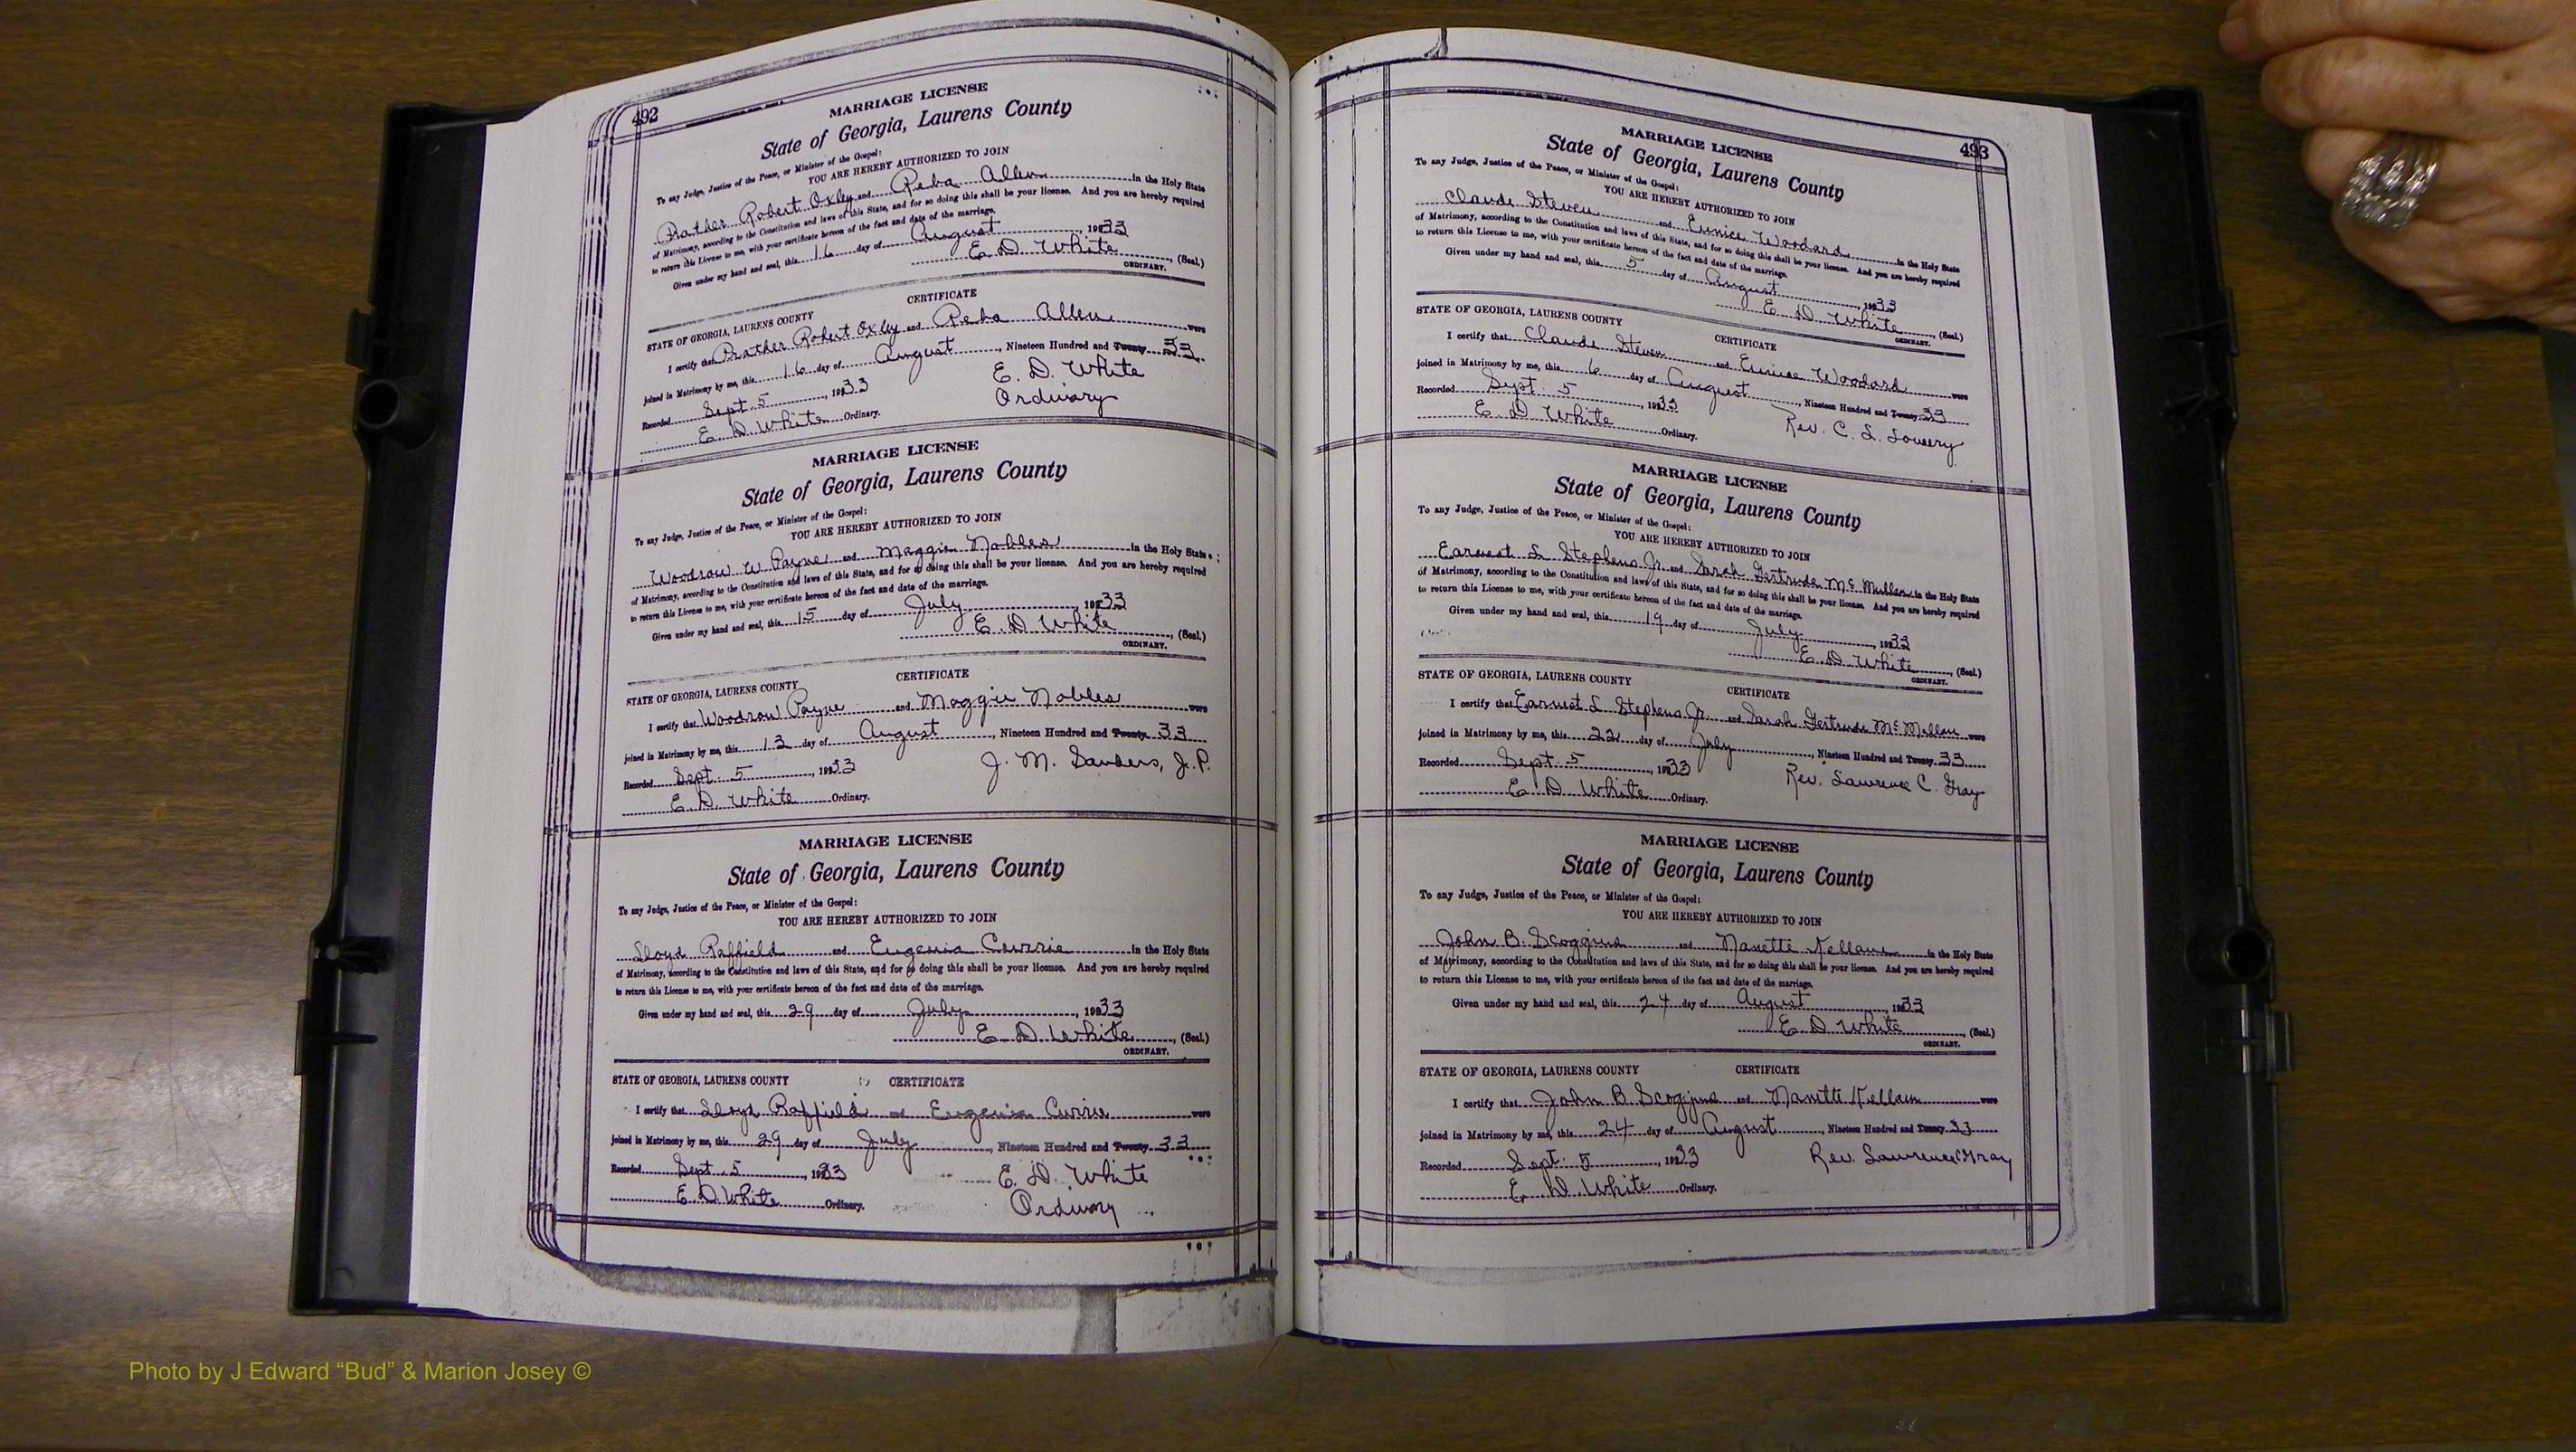 492
MARRIAGE LICENSE
State of Georgia, Laurens County
To any Judge, Justice of the Peace, or Minister of the Gospel:
YOU ARE HEREBY AUTHORIZED TO JOIN
Prather Robert Oxley and Reba Allen in the Holy State
of Matrimony, according to the Constitution and laws of this State, and for so doing this shall be your license. And you are hereby required
to return this License to me, with your certificate hereon of the fact and date of the marriage.
Given under my hand and seal, this 16 day of August, 1933
E. D. White, (Seal.)
ORDINARY.
CERTIFICATE
STATE OF GEORGIA, LAURENS COUNTY
I certify that Prather Robert Oxley and Reba Allen were
joined in Matrimony by me, this 16 day of August, Nineteen Hundred and Twenty 33
Recorded Sept. 5, 1933 E. D. White
E. D. White Ordinary. Ordinary
MARRIAGE LICENSE
State of Georgia, Laurens County
To any Judge, Justice of the Peace, or Minister of the Gospel:
YOU ARE HEREBY AUTHORIZED TO JOIN
Woodrow W Payne and Maggie Nobles in the Holy State
of Matrimony, according to the Constitution and laws of this State, and for so doing this shall be your license. And you are hereby required
to return this License to me, with your certificate hereon of the fact and date of the marriage.
Given under my hand and seal, this 15 day of July, 1933
E. D. White, (Seal.)
ORDINARY.
CERTIFICATE
STATE OF GEORGIA, LAURENS COUNTY
I certify that Woodrow Payne and Maggie Nobles were
joined in Matrimony by me, this 13 day of August, Nineteen Hundred and Twenty 33
Recorded Sept. 5, 1933 J. M. Sanders, J.P.
E. D. White Ordinary.
MARRIAGE LICENSE
State of Georgia, Laurens County
To any Judge, Justice of the Peace, or Minister of the Gospel:
YOU ARE HEREBY AUTHORIZED TO JOIN
Lloyd Raffield and Eugenia Currie in the Holy State
of Matrimony, according to the Constitution and laws of this State, and for so doing this shall be your license. And you are hereby required
to return this License to me, with your certificate hereon of the fact and date of the marriage.
Given under my hand and seal, this 29 day of July, 1933
E. D. White, (Seal.)
ORDINARY.
STATE OF GEORGIA, LAURENS COUNTY CERTIFICATE
I certify that Lloyd Raffield and Eugenia Currie were
joined in Matrimony by me, this 29 day of July, Nineteen Hundred and Twenty 33
Recorded Sept. 5, 1933 E. D. White
E. D. White Ordinary. Ordinary
493
MARRIAGE LICENSE
State of Georgia, Laurens County
To any Judge, Justice of the Peace, or Minister of the Gospel:
YOU ARE HEREBY AUTHORIZED TO JOIN
Claude Steven and Eunice Woodard in the Holy State
of Matrimony, according to the Constitution and laws of this State, and for so doing this shall be your license. And you are hereby required
to return this License to me, with your certificate hereon of the fact and date of the marriage.
Given under my hand and seal, this 5 day of August, 1933
E. D. White, (Seal.)
ORDINARY.
STATE OF GEORGIA, LAURENS COUNTY CERTIFICATE
I certify that Claude Steven and Eunice Woodard were
joined in Matrimony by me, this 6 day of August, Nineteen Hundred and Twenty 33
Recorded Sept. 5, 1933 Rev. C. L. Lowery
E. D. White Ordinary.
MARRIAGE LICENSE
State of Georgia, Laurens County
To any Judge, Justice of the Peace, or Minister of the Gospel:
YOU ARE HEREBY AUTHORIZED TO JOIN
Earnest L Stephens Jr. and Sarah Gertrude McMillan in the Holy State
of Matrimony, according to the Constitution and laws of this State, and for so doing this shall be your license. And you are hereby required
to return this License to me, with your certificate hereon of the fact and date of the marriage.
Given under my hand and seal, this 19 day of July, 1933
E. D. White, (Seal.)
ORDINARY.
STATE OF GEORGIA, LAURENS COUNTY CERTIFICATE
I certify that Earnest L Stephens Jr. and Sarah Gertrude McMillan were
joined in Matrimony by me, this 22 day of July, Nineteen Hundred and Twenty 33
Recorded Sept. 5, 1933 Rev. Lawrence C. Gray
E. D. White Ordinary.
MARRIAGE LICENSE
State of Georgia, Laurens County
To any Judge, Justice of the Peace, or Minister of the Gospel:
YOU ARE HEREBY AUTHORIZED TO JOIN
John B. Scoggins and Nanette Kellam in the Holy State
of Matrimony, according to the Constitution and laws of this State, and for so doing this shall be your license. And you are hereby required
to return this License to me, with your certificate hereon of the fact and date of the marriage.
Given under my hand and seal, this 24 day of August, 1933
E. D. White, (Seal.)
ORDINARY.
STATE OF GEORGIA, LAURENS COUNTY CERTIFICATE
I certify that John B Scoggins and Nanette Kellam were
joined in Matrimony by me, this 24 day of August, Nineteen Hundred and Twenty 33
Recorded Sept. 5, 1933 Rev. Lawrence Gray
E. D. White Ordinary.
Photo by J Edward “Bud” & Marion Josey ©